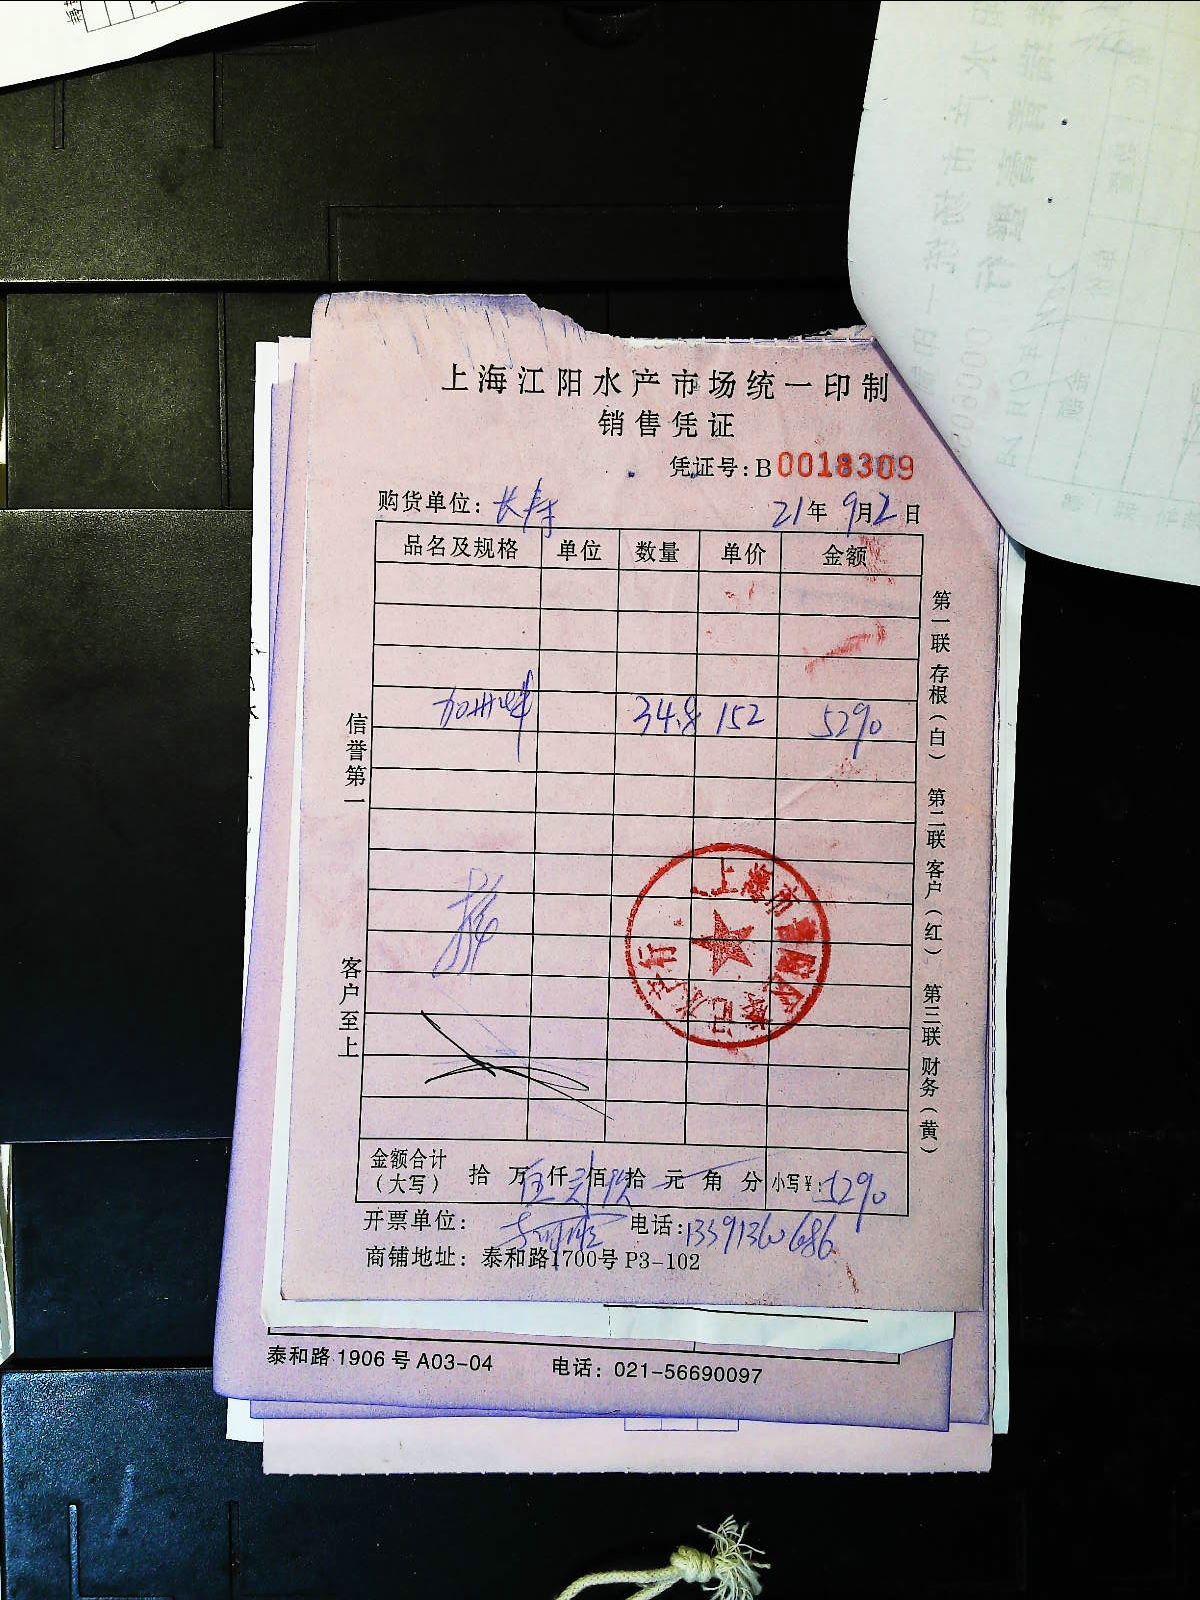 上海江阳水产市场统一印制
销售凭证
凭证号：B 0018309
购货单位：长寿 21年 9月2日
品名及规格 单位 数量 单价 金额
加州蚌 34.8 152 5290
信誉第一
客户至上
第一联 存根（白） 第二联 客户（红） 第三联 财务（黄）
上海市 水产行
金额合计
（大写） 拾 万 伍 仟 贰 佰 玖 拾 元 角 分 小写¥：5290
开票单位： 电话：13391360686
商铺地址：泰和路1700号 P3-102
泰和路 1906 号 A03-04 电话：021-56690097